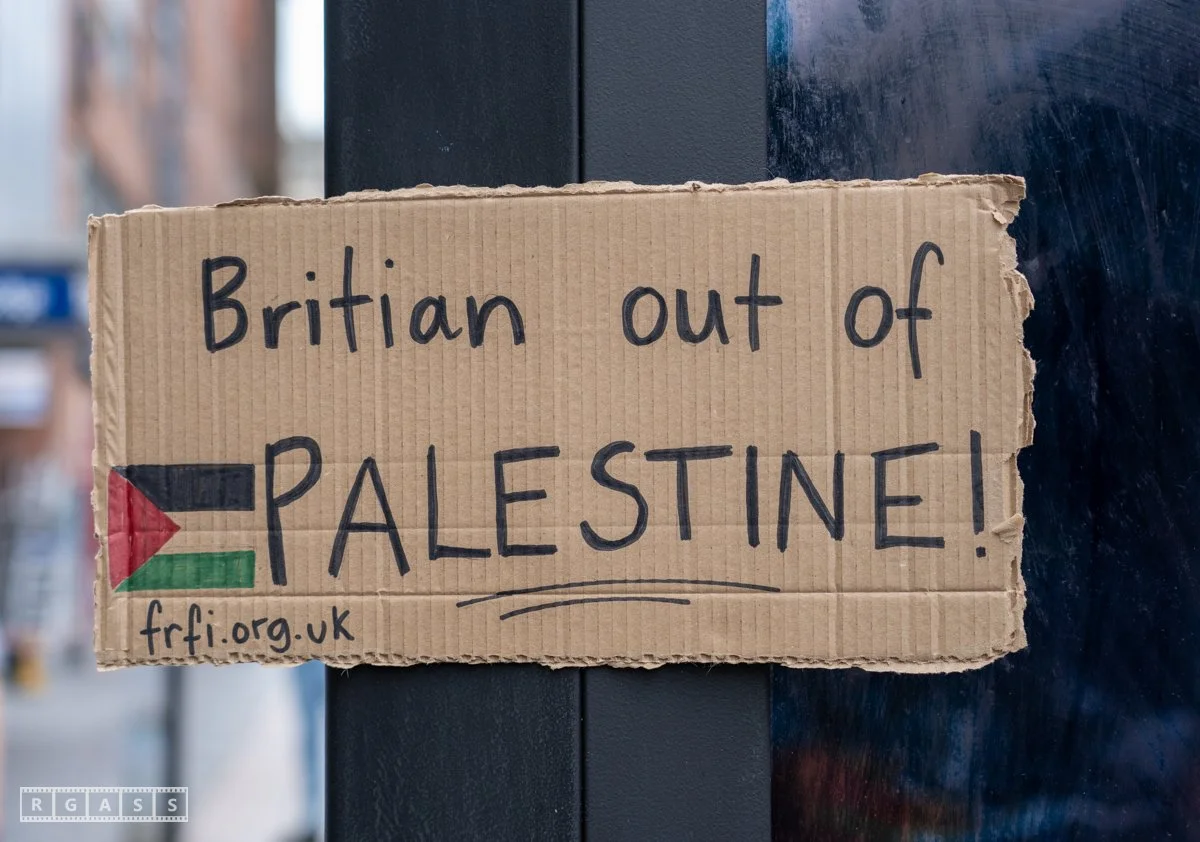 Britian out of
PALESTINE!
frfi.org.uk
RGASS